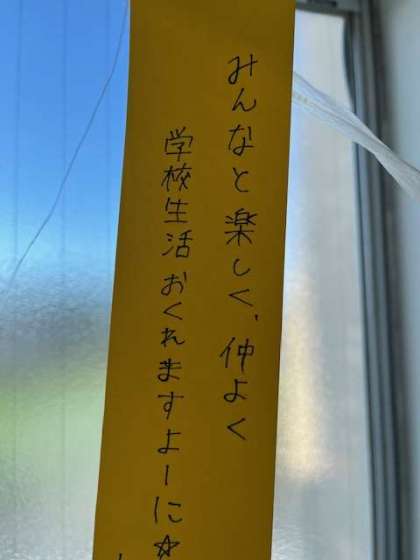 みんなと楽しく、仲よく
学校生活おくれますよーに☆